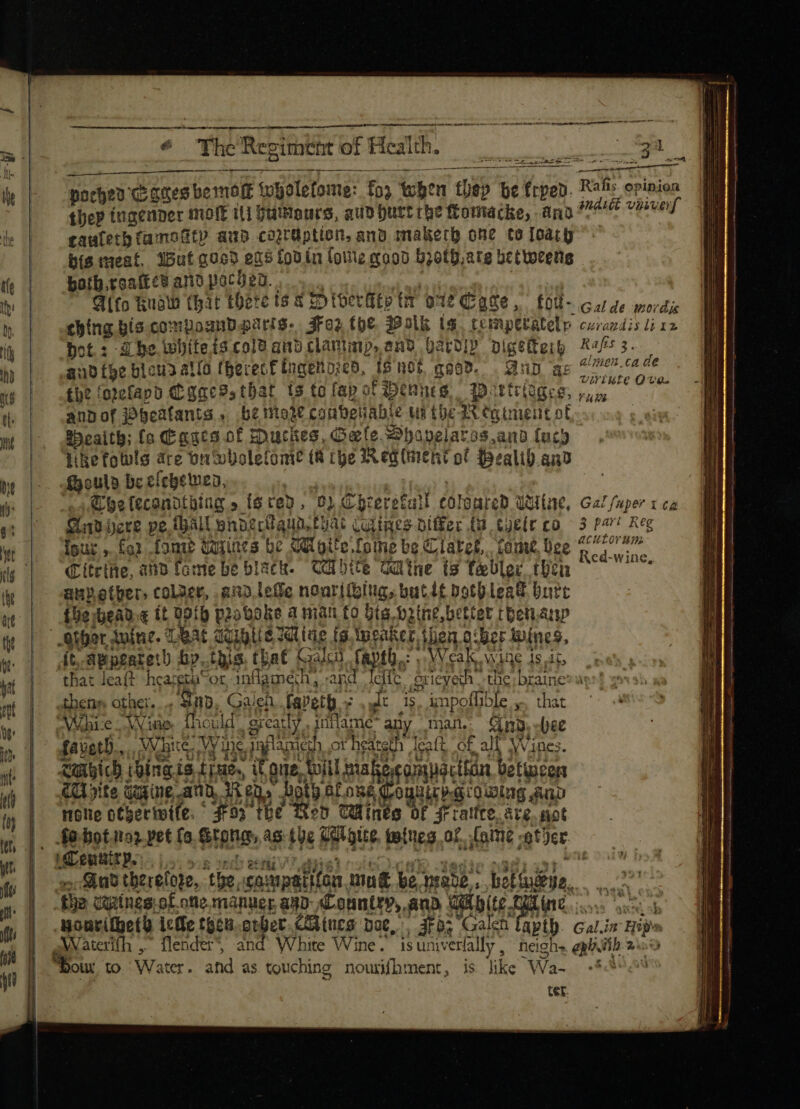 The Regiment of Health. 31
poched Egges be most wholesome: for when they be fryed,
they ingender most ill humours, and hurt the stomacke, and
causeth fumosity and corruption, and maketh one to loath
his meat. But good egs sod in some good broth, are betweene
both, roasted and poched.
Also know that there is a Diversity in one Egge, tou-
ching his compound parts. For the Yolk is temperately
hot: The white is cold and clammy, and hardly digesteth
and the bloud also thereof ingendred, is not good. And as
the foresayd Egges, that is to say of Hennes, Partridges,
and of Pheasants, be more convenable in the Regiment of
Health; so Egges of Duckes, Geese, Shovelards, and such
like fowls are unwholesome in the Regiment of Health and
should be eschewed.
The second thing, is red, or Cleerefull coloured Wine,
And here ye shall understand, that Wines differ in their co
lour, for some Wines be White, some be Claret, some bee
Citrine, and some be black. White Wine is feebler then
any other, colder, and lesse nourishing, but it doth least hurt
the head & it doth provoke a man to his urine, better then any
other wine. That White Wine is weaker, then other Wines,
it appeareth by this, that Galen sayth, Weak wine is it,
that least heateth or inflameth, and lesse grieveth the braine
then other. And, Galen sayeth, it is impossible, that
White Wine should greatly inflame any man. And, hee
sayeth, White Wine inflameth or heateth least of all Wines.
Which thing is true, if one will make comparison betweene
White Wine and Red, both of one Country growing and
none otherwise. For the Red Wines of France, are not
so hot nor yet so strong, as the White wines of some other
Countrp.
And therefore, the comparison must be made, betweene
the Wines of one manner and Country, and White Wine
nourisheth lesse then other Wines doe, For Galen sayth
Waterish, slender, and White Wine is universally, neigh-
bour to Water. and as touching nourishment, is like Wa-
ter.
Rasis opinion
Gal de mordis
curandis li 12
Rasis 3.
almen. ca de
virtute Ovo-
rum
Gal super 1 ca
3 part Reg
acutorum
Red-wine,
Gal. in Hipo